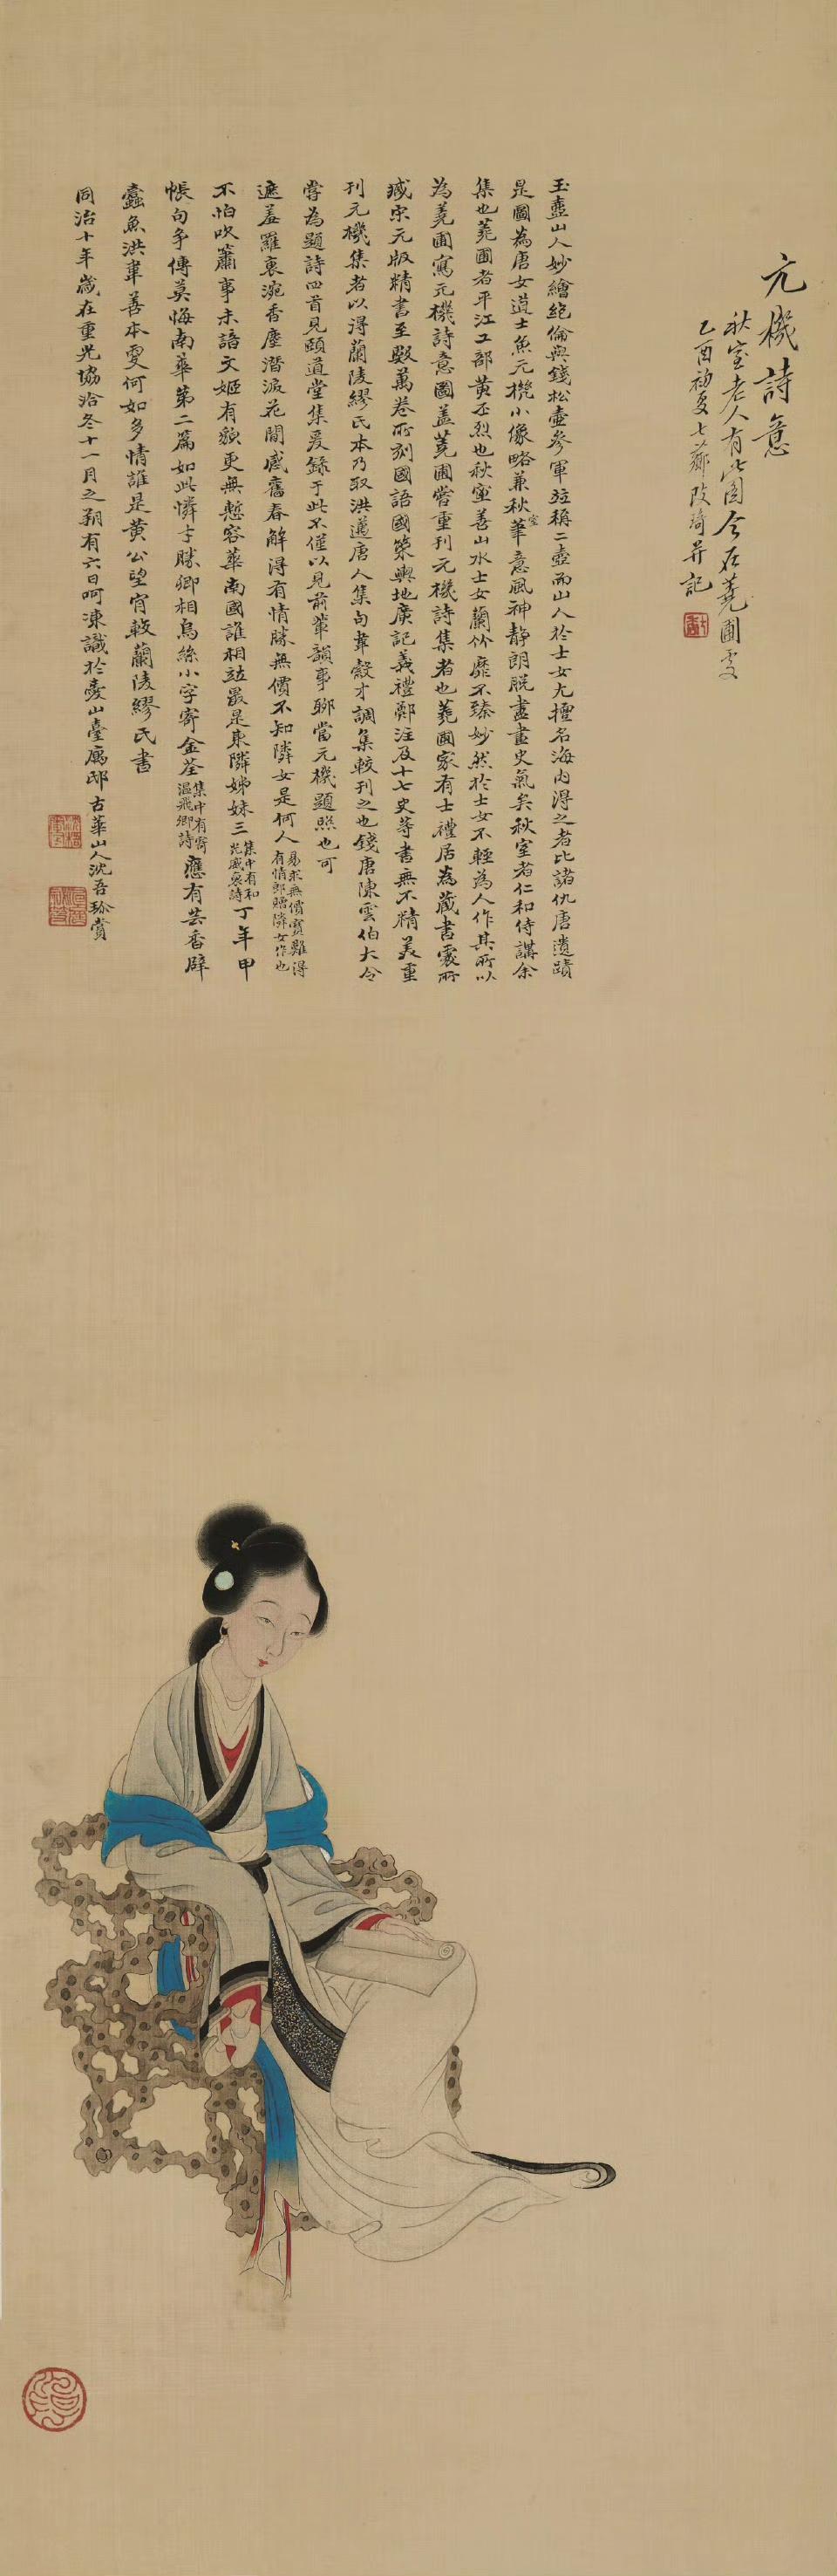 元機詩意
秋室老人有此圖今在蕘圃處
乙酉初夏七薌改琦并記
玉壺山人妙繪絕倫與錢松壺參軍竝稱二壺而山人於士女尤擅名海內得之者比諸仇唐遺蹟
是圖為唐女道士魚元機小像略兼秋室筆意風神靜朗脫盡畫史氣矣秋室者仁和侍講余
集也蕘圃者平江工部黃丕烈也秋室善山水士女蘭竹靡不臻妙然於士女不輕為人作其所以
為蕘圃寫元機詩意圖蓋蕘圃嘗重刊元機詩集者也蕘圃家有士禮居為藏書處所
臧宋元版精書至數萬卷所刻國語國策輿地廣記義禮鄭注及十七史等書無不精美重
刊元機集者以得蘭陵繆氏本乃取洪邁唐人集句韋縠才調集較刊之也錢唐陳雲伯大令
嘗為題詩四首見頤道堂集爰錄于此不僅以見前輩韻事聊當元機題照也可
遮羞羅裏涴香塵潛淚花間感舊春解得有情勝無價不知隣女是何人易求無價寶難得有情郎贈隣女作也
不怕吹簫事未諳文姬有貌更無慙容華南國誰相竝最是東隣姊妹三集中有和光威裒詩丁年甲
帳句爭傳莫悔南華第二篇如此憐才勝卿相烏絲小字寄金荃集中有寄溫飛卿詩應有芸香辟
蠹魚洪韋善本更何如多情誰是黃公望肎較蘭陵繆氏書
同治十年歲在重光協洽冬十一月之朔有六日呵凍識於愛山臺寓邸古華山人沈吾珍賞